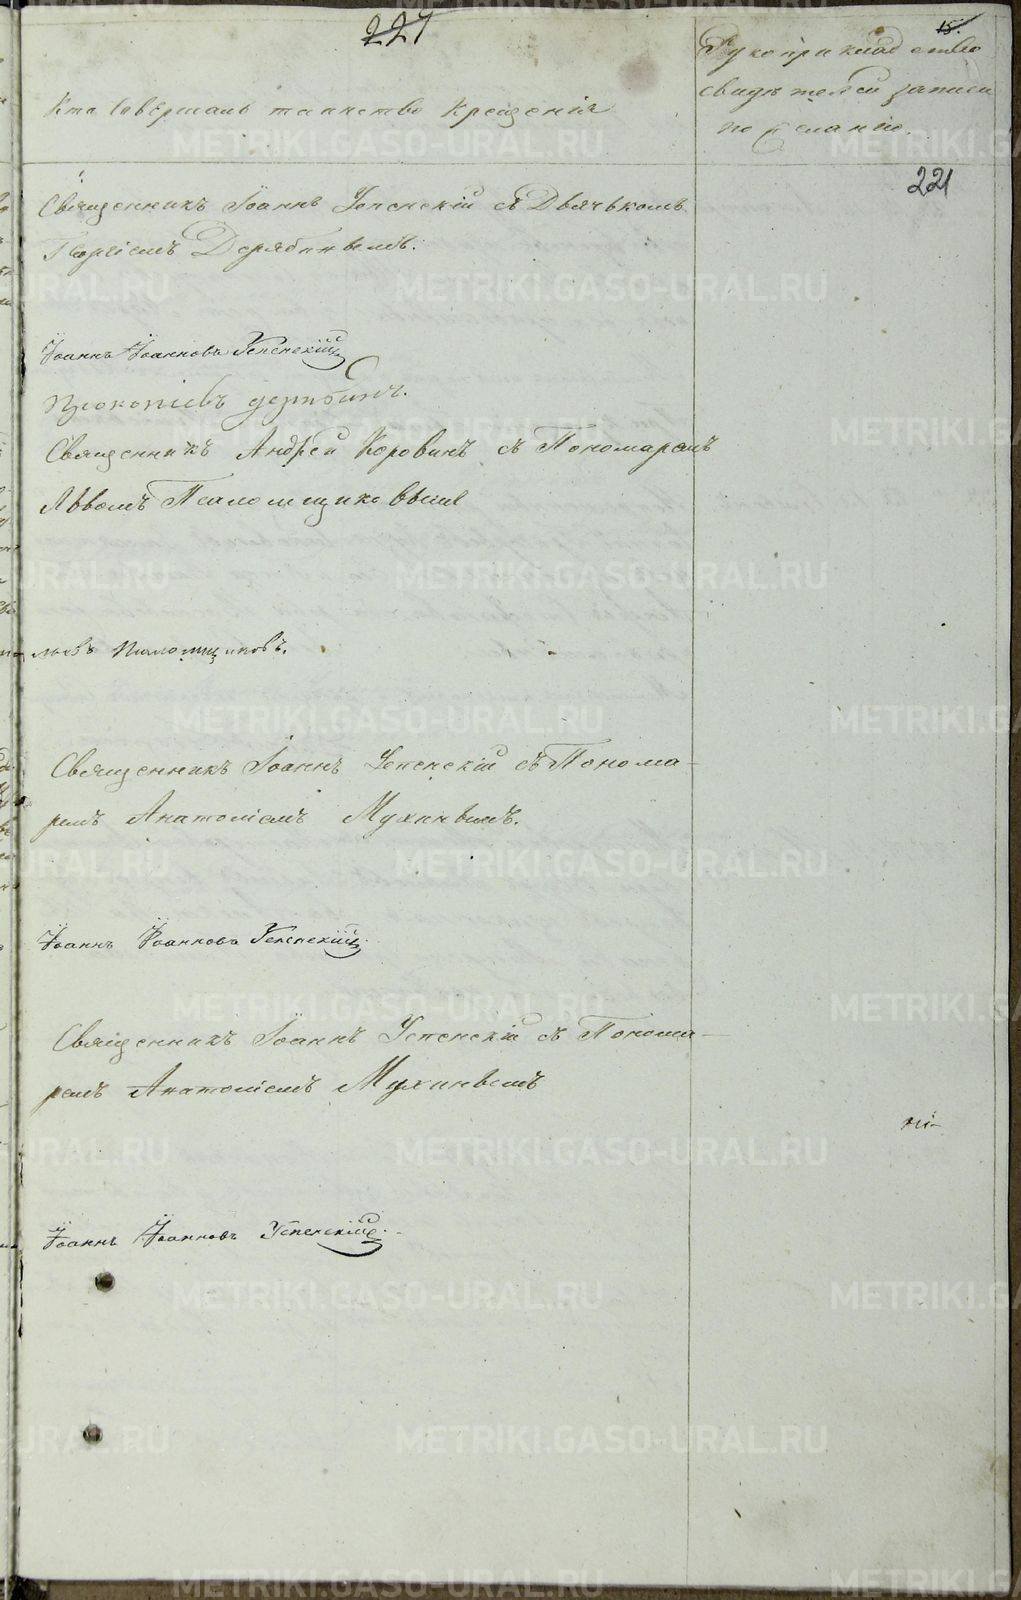 227
15.
Рукоприкладство
свидѣтелей записи
по желанію.
Кто совершалъ таинство крещенія
221
Священникъ Іоаннъ Успенскій съ Дьячькомъ
Георгіемъ Дерябинымъ.
Іоаннъ Іоанновъ Успенскій
Прокопіевъ Дерябинъ.
Священникъ Андрей Коровинъ съ Пономаремъ
Львомъ Псаломщиковымъ
Левъ Псаломщиковъ.
Священникъ Іоаннъ Успенскій съ Понома-
ремъ Анатоліемъ Мухинымъ.
Іоаннъ Іоанновъ Успенскій
Священникъ Іоаннъ Успенскій съ Понома-
ремъ Анатоліемъ Мухинымъ
Іоаннъ Іоанновъ Успенскій
METRIKI.GASO-URAL.RU